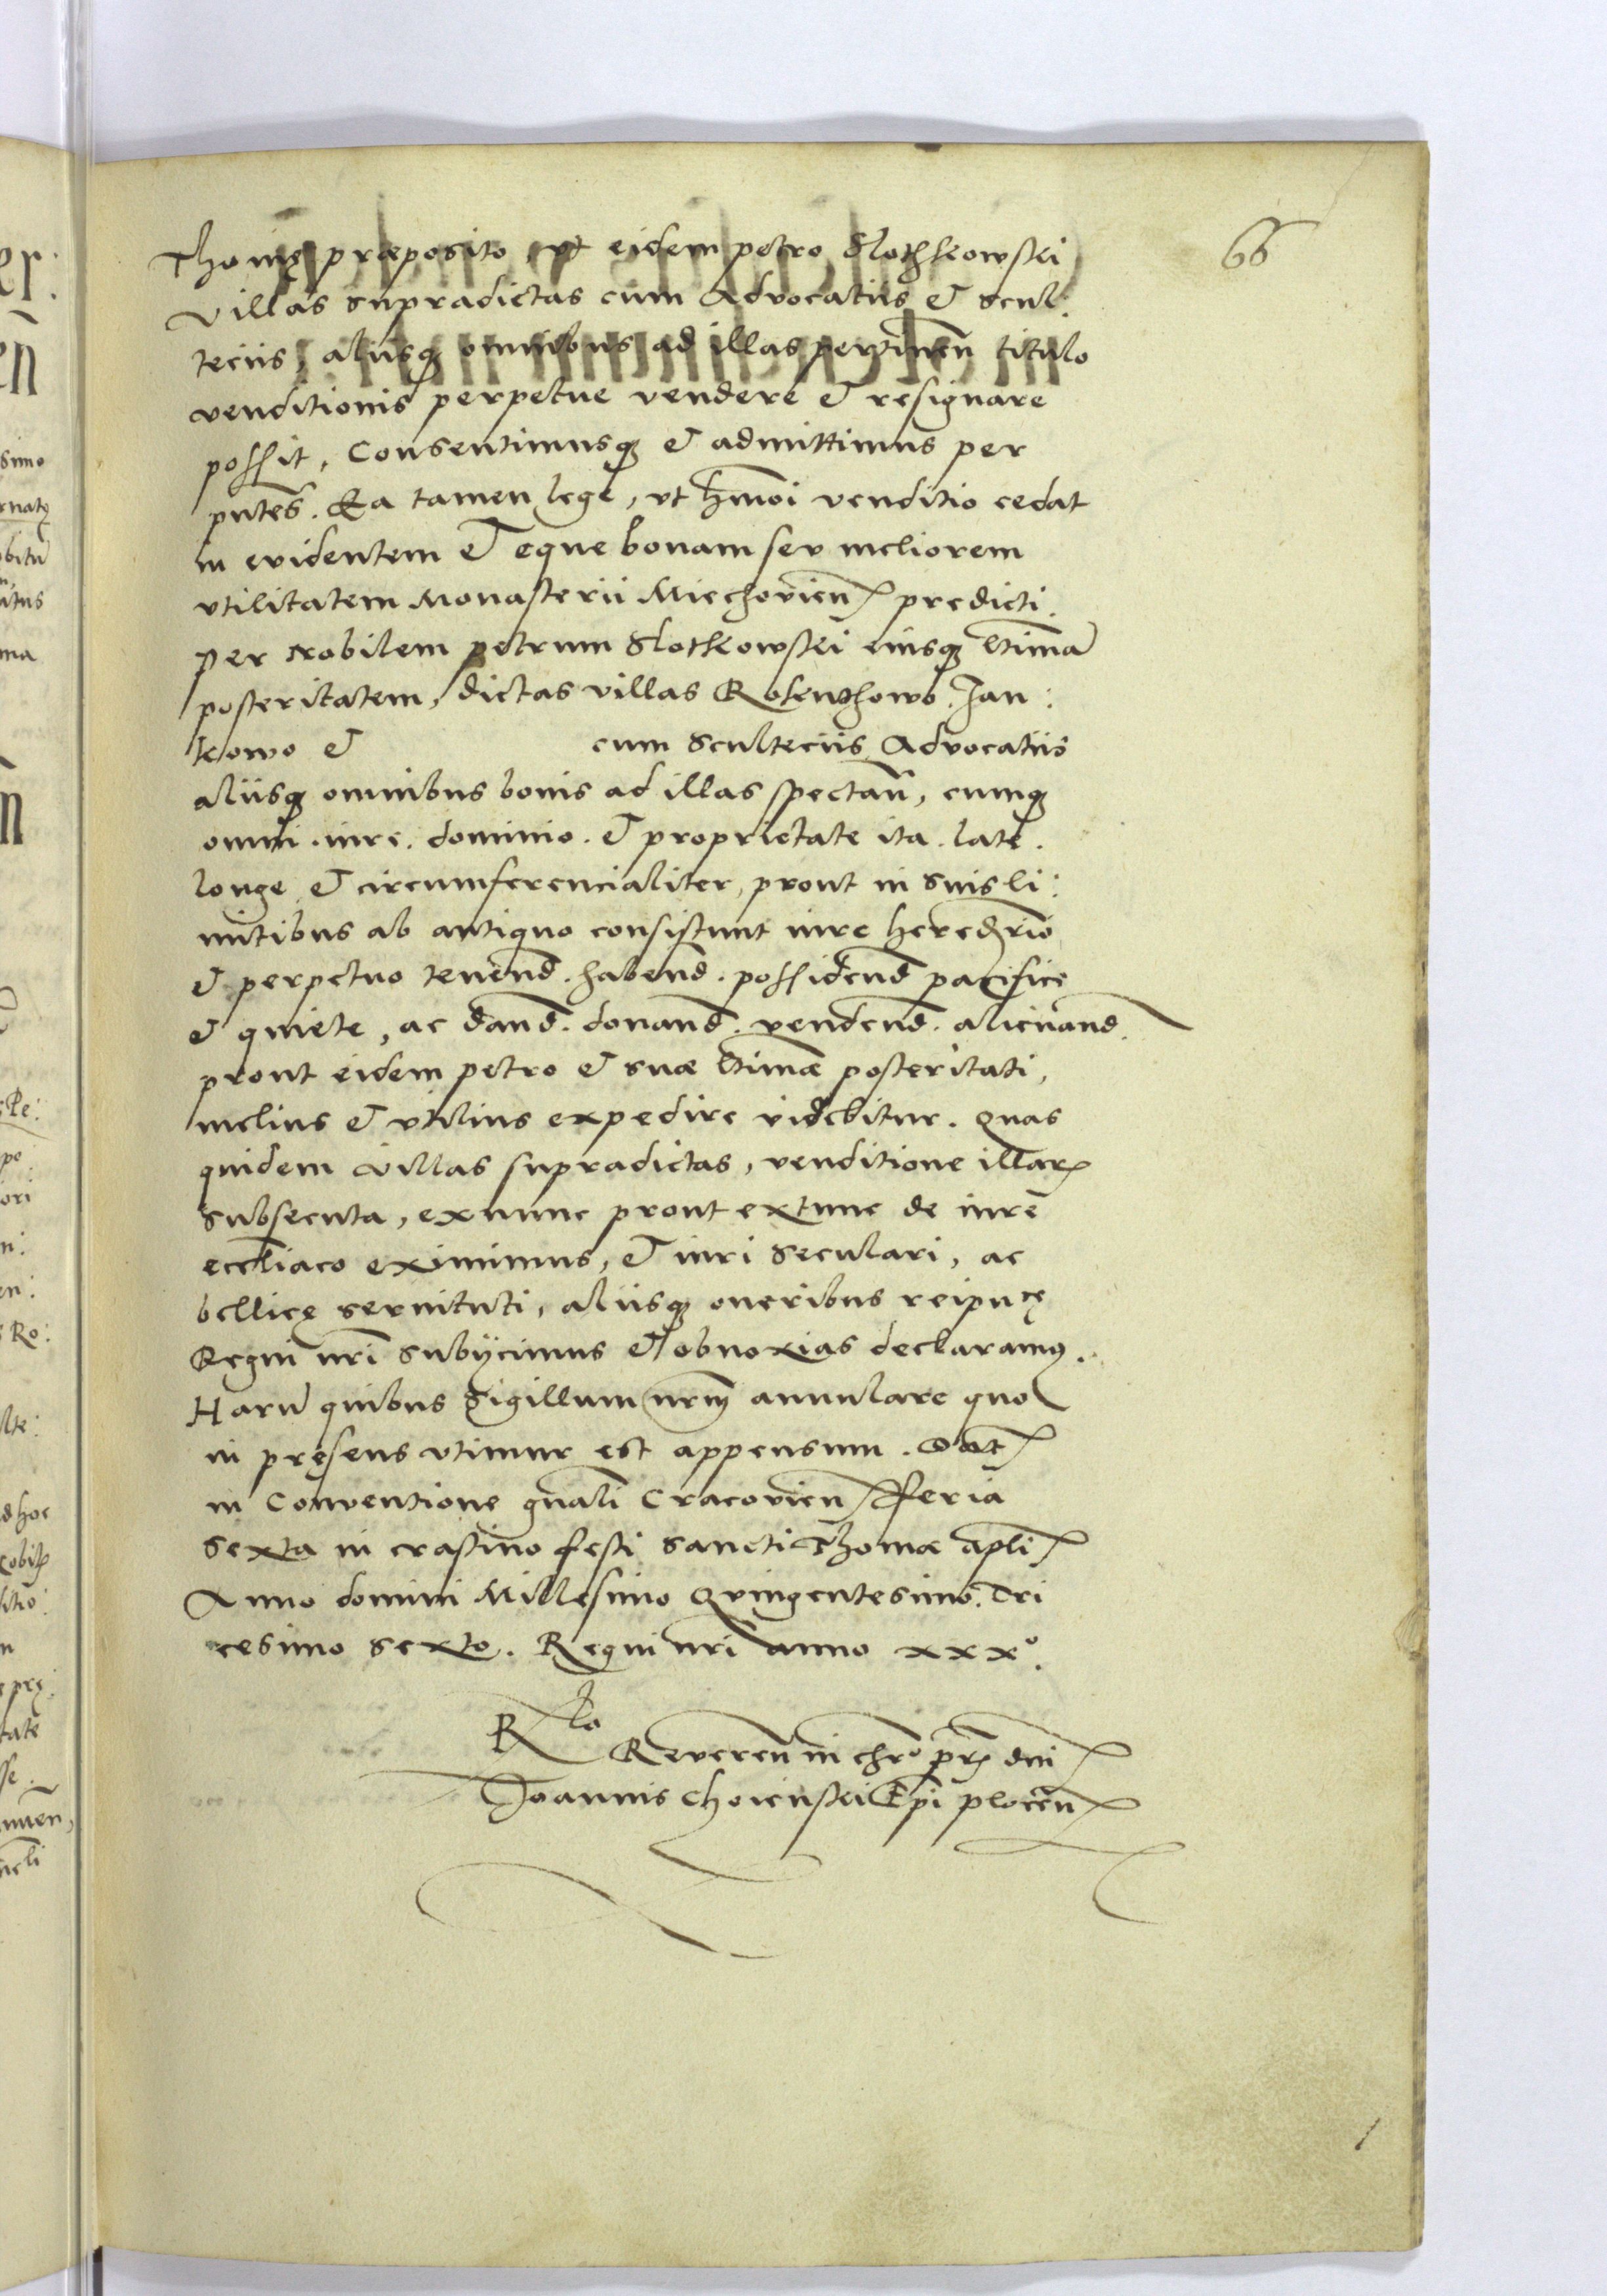 66
Thomę præposito, vt eidem petro Slothkowski
Villas supradictas cum Advocatiis et scul:
teciis, aliisq3 omnibus ad illas pertinen̄ titulo
venditionis perpetue vendere et resignare
possit, Consentimusq3 et admittimus per
pñtes. Ea tamen lege, vt hmōi venditio cedat
in evidentem et eque bonam seu meliorem
vtilitatem Monasterii Miechovien̄ predicti.
per Nobilem petrum Slotkowski eiusq3 l̃timā
posteritatem, dictas villas Jan:
kowo et cum sculteciis Advocatiis
aliisq3 omnibus bonis ad illas spectan̄, cumq3
omni iure. dominio. et proprietate ita late.
longe et circumferencialiter, prout in suis li:
mitibus ab antiquo consistunt iure hered̃rio
et perpetuo tenend̄. habend̄. possidend̄ pacifice
et quiete, ac dand̄. donand̄. vendend̄. alienand̄.
prout eidem petro et suæ l̃timæ posteritati,
melius et vtilius expedire videbitur. Quas
quidem villas supradictas, venditione illarꝝ
subsecuta, exnunc prout extunc de iure
eccl̃iaco eximimus, et iuri seculari, ac
bellicę servituti, aliisq3 oneribus reipucę
Regni nr̃i subÿcimus et obnoxias declaramꝰ.
Harū quibus Sigillum nr̃m annulare quo
in pręsens vtimur est appensum. Dat̃
in Conventione gñali Cracovien̄ fferia
sexta in crastino festi Sancti Thomæ apl̃i
Anno domini Millesimo Quingentesimo. Tri
cesimo sexto. Regni nr̃i anno xxxº.
Rlo
Reveren̄ in chrº pr̃is dñi
Joannis Choienski Ep̃i plocen̄